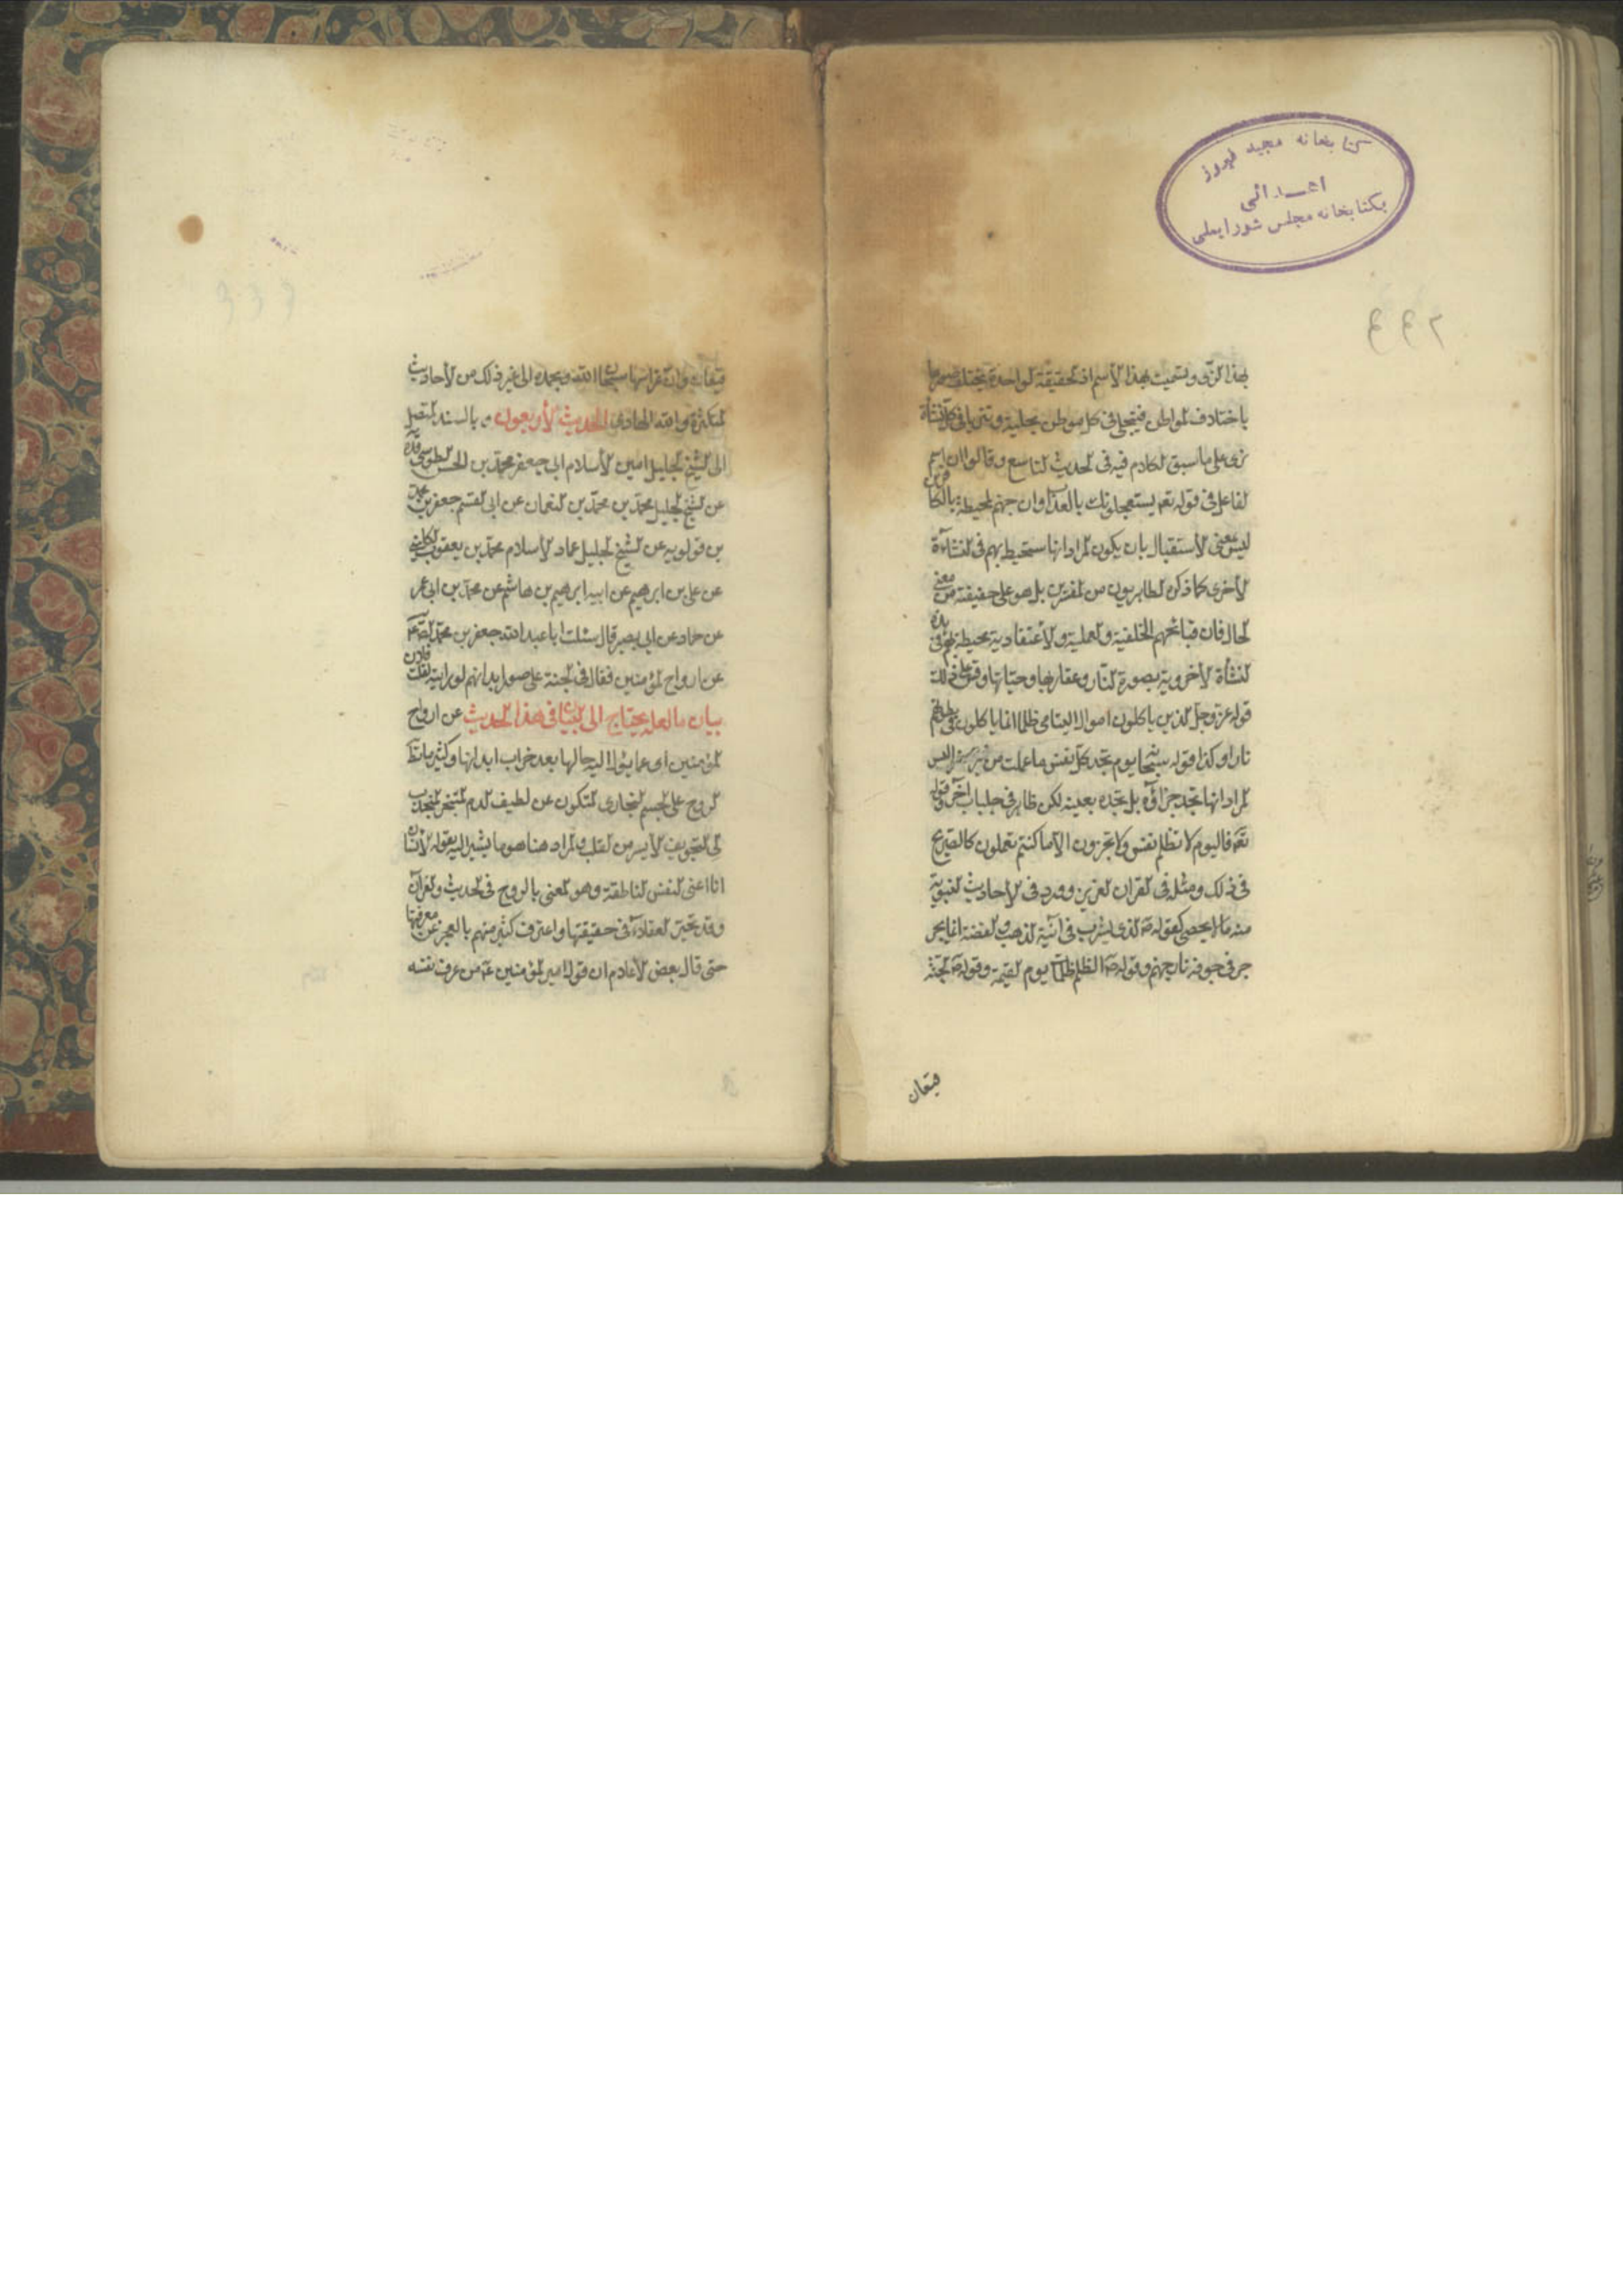 كتابخانه مجيد فيروز
اهدائى
بكتابخانه مجلس شورايملى
٤٤٢
بهذا الزى وتسميت بهذا الأسم اذ الحقيقة الواحدة تختلف صورها
باختلاف المواطن فيتجلى فى كل موطن بحلية وتتزيا فى كل نشأة
بزى على ما سبق الكلام فيه فى الحديث التاسع وقالوا ان اسم
الفاعل فى قوله تعه يستعجلونك بالعذاب وان جهنم لمحيطة بالكافرين
ليس بمعنى الأستقبال بان يكون المراد انها ستحيط بهم فى النشاءة
الأخرى كما ذكره الظاهريون من المفسرين بل هو على حقيقته من معنى
الحال فان قبائحهم الخلقية والعملية والأعتقادية محيطة بهم فى هذه
النشأة الأخروية بصورة النار وعقاربها وحياتها وقس على ذلك
قوله عز وجل الذين ياكلون اموال اليتامى ظلما انما ياكلون فى بطونهم
نارا وكذا قوله سبحانه يوم تجد كل نفس ما عملت من خير محضرا ليس
المراد انها تجد جزاؤه بل تجده بعينه لكن ظاهر فى جلباب اخر وقوله
تعه فاليوم لا تظلم نفس ولا تجزون الا ما كنتم تعملون كالصريح
فى ذلك ومثله فى القران العزيز وورد فى الأحاديث النبوية
منه ما لا يحصى كقوله صه الذى يشرب فى آنية الذهب والفضة انما يجر
جر فى جوفه نار جهنم وقوله صه الظلم ظلمات يوم القيمة وقوله صه الجنة
قيعان
قيعان وان غراسها سبحان الله وبحمده الى غير ذلك من الأحاديث
المتكثرة والله الهادى الحديث الأربعون وبالسند المتصل
الى الشيخ الجليل امين الأسلام ابى جعفر محمد بن الحسن الطوسى
عن الشيخ الجليل محمد بن محمد بن النعمان عن ابى القسم جعفر بن محمد
بن قولويه عن الشيخ الجليل عماد الأسلام محمد بن يعقوب الكلينى
عن على بن ابرهيم عن ابيه ابرهيم بن هاشم عن محمد بن ابى عمر
عن حماد عن ابى بصير قال سئلت ابا عبد الله جعفر بن محمد الصه عه
عن ارواح المؤمنين فقال فى الجنة على صور ابدانهم لو رايته لقلت فلان
بيان ما لعله يحتاج الى البيان فى هذا الحديث عن ارواح
المؤمنين اى عما يئول اليه حالها بعد خراب ابدانها وكثير ما تط
الروح على الجسم البخارى المتكون عن لطيف الدم المتبخر المنجذب
الى التجويف الأيسر من القلب والمراد هنا هو ما يشير اليه بقوله الأنسان
انا اعنى النفس الناطقة وهو المعنى بالروح فى الحديث والقرآن
وقد تحير العقلاء فى حقيقتها واعترف كثير منهم بالعجز عن معرفتها
حتى قال بعض الأعلام ان قول امير المؤمنين عه من عرف نفسه